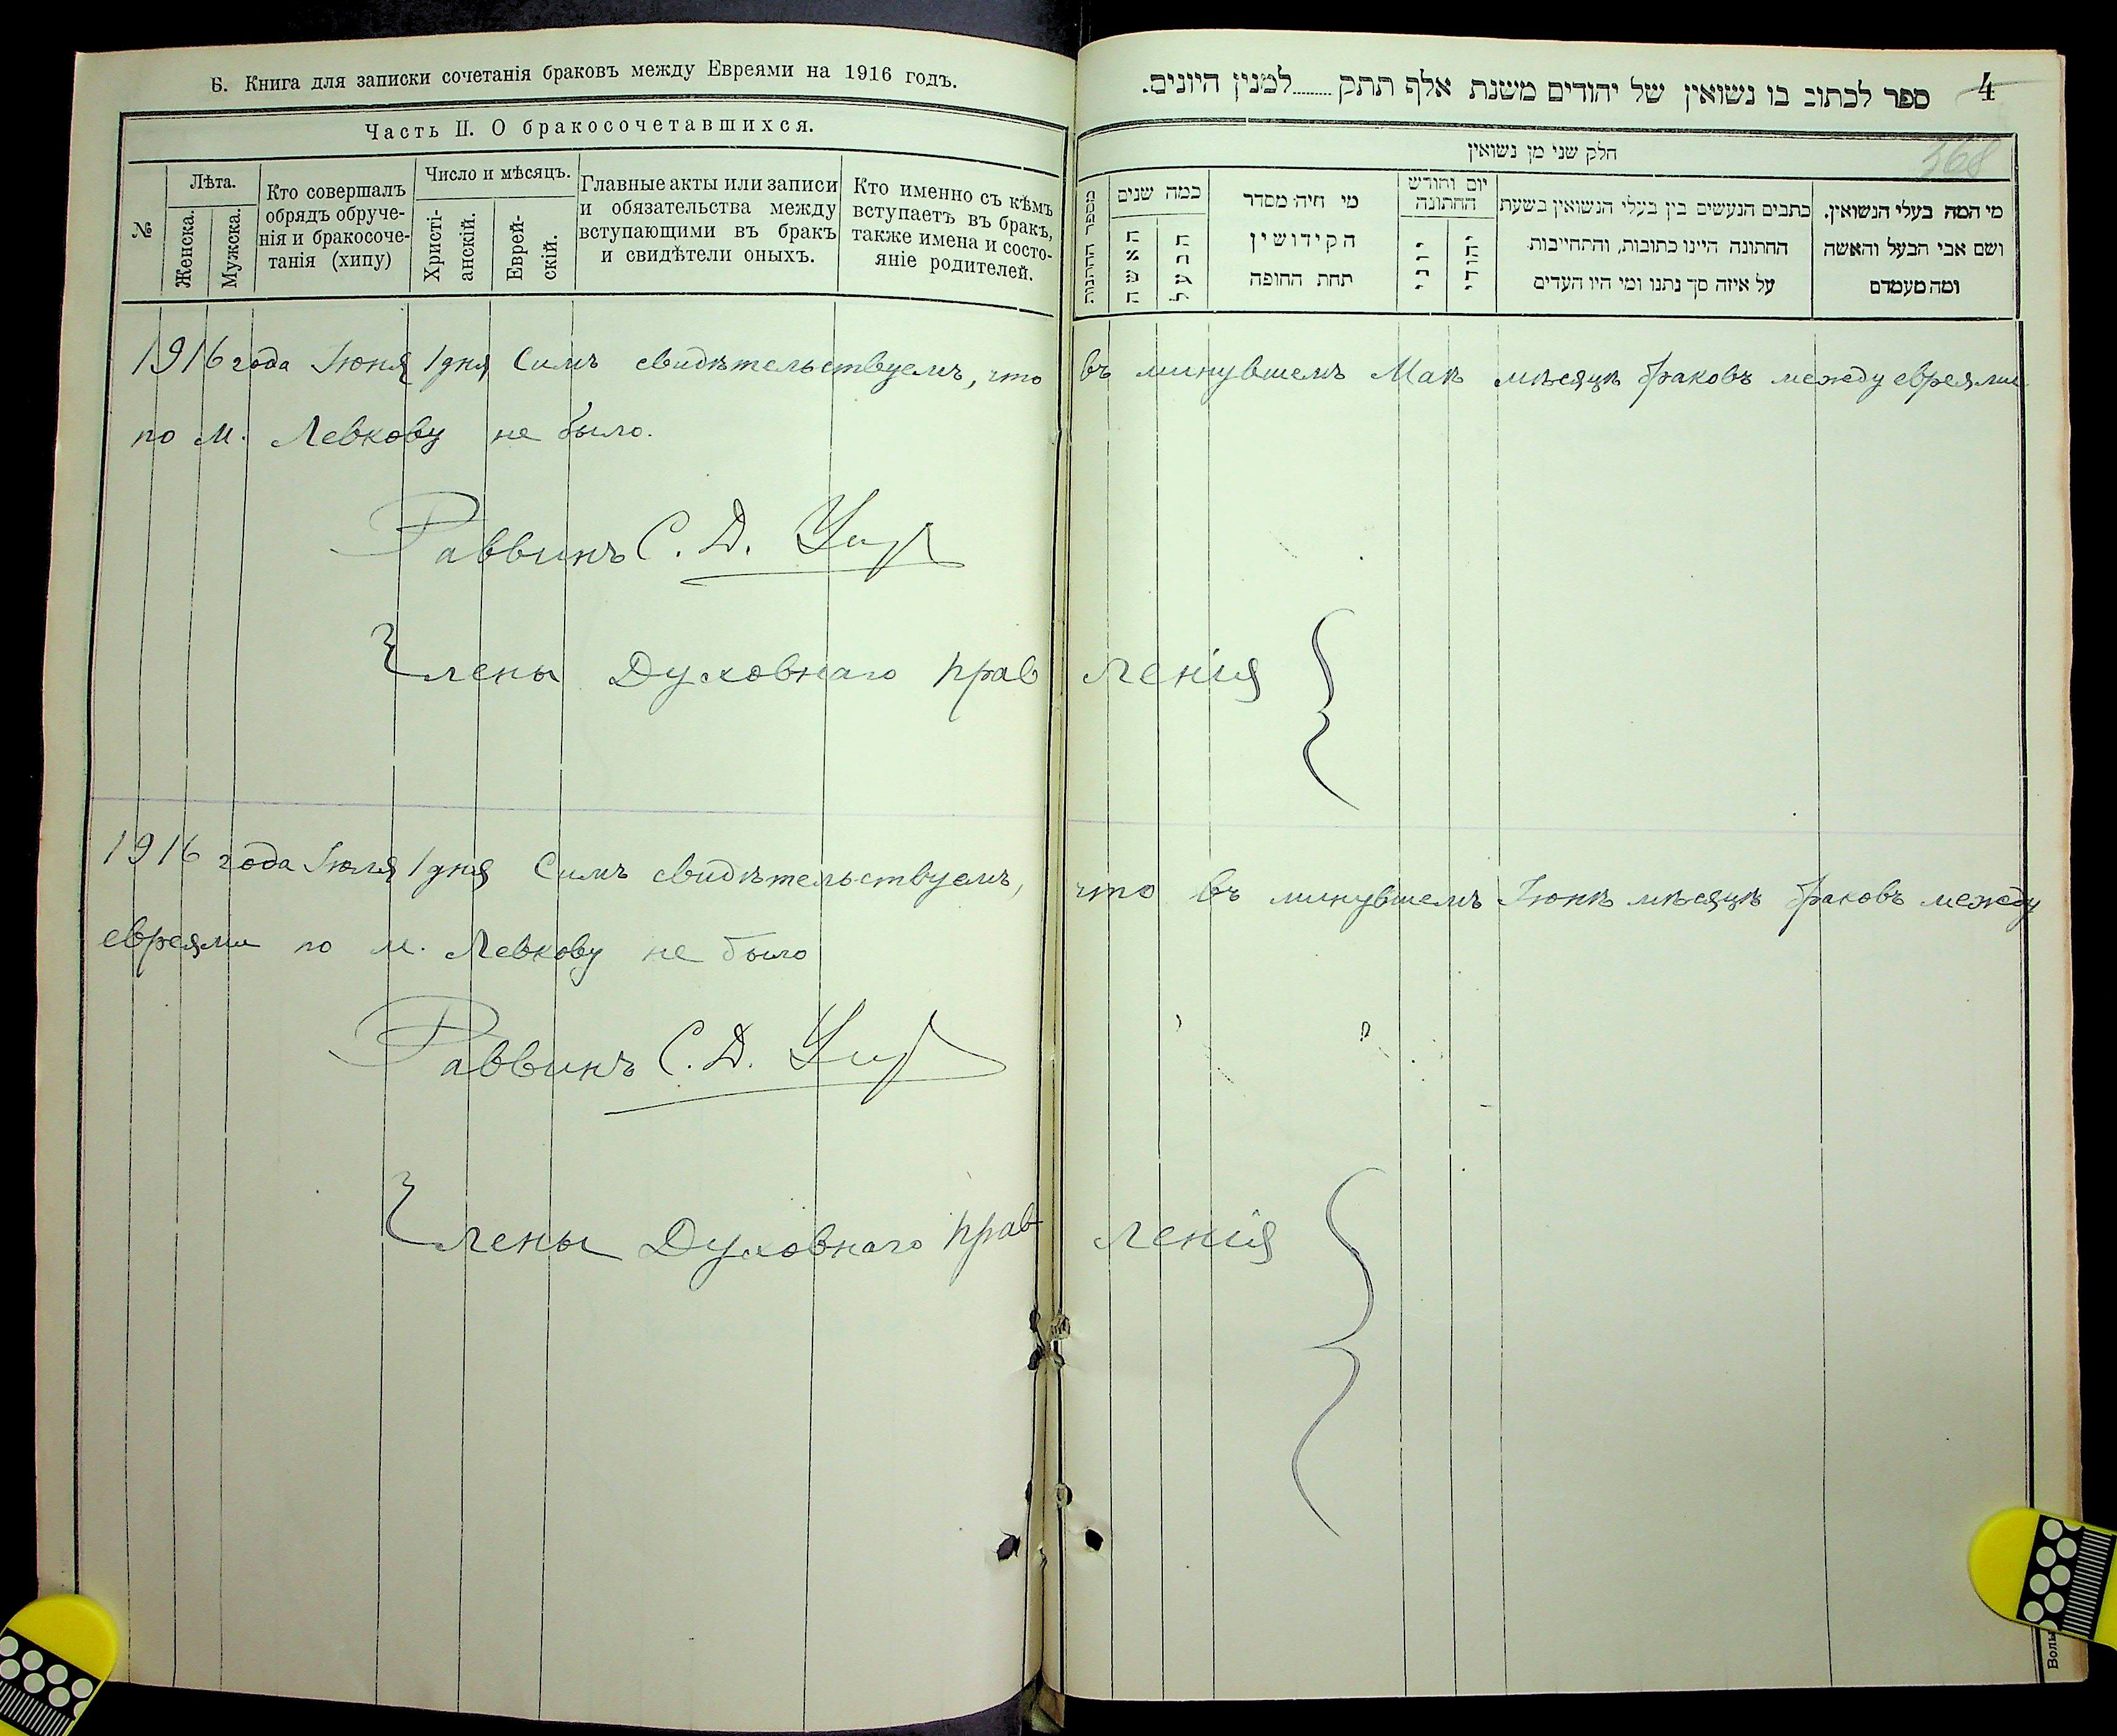 Б. Книга для записки сочетанія браковъ между Евреями на 1916 годъ.
Часть II. О бракосочетавшихся.
№
Лѣта.
Женска.
Мужска.
Кто совершалъ
обрядъ обруче-
нія и бракосоче-
танія (хипу)
Число и мѣсяцъ.
Христі-
анскій.
Еврей-
скій.
Главные акты или записи
и обязательства между
вступающими въ бракъ
и свидѣтели оныхъ.
Кто именно съ кѣмъ
вступаетъ въ бракъ,
также имена и состо-
яніе родителей.
ספר לכתוב בו נשואין של יהודים משנת אלף תתק........למנין היונים.
4
368
חלק שני מן נשואין
מי המה בעלי הנשואין.
ושם אבי הבעל והאשה
ומה מעמדם
כתבים הנעשים בין בעלי הנשואין בשעת
החתונה היינו כתובות, והתחייבות
על איזה סך נתנו ומי היו העדים
יום וחודש
החתונה
יהודי
יוני
מי היה מסדר
הקידושין
תחת החופה
כמה שנים
הבעל
האשה
מספר החתונות
1916 года Іюня 1 дня Симъ свидѣтельствуемъ, что въ минувшемъ Маѣ мѣсяцѣ браковъ между евреями
по м. Левкову не было.
Раввинъ С. Д.
Члены Духовнаго правленія
1916 года Іюля 1 дня Симъ свидѣтельствуемъ, что въ минувшемъ Іюнѣ мѣсяцѣ браковъ между
евреями по м. Левкову не было
Раввинъ С. Д.
Члены Духовнаго правленія
Волы